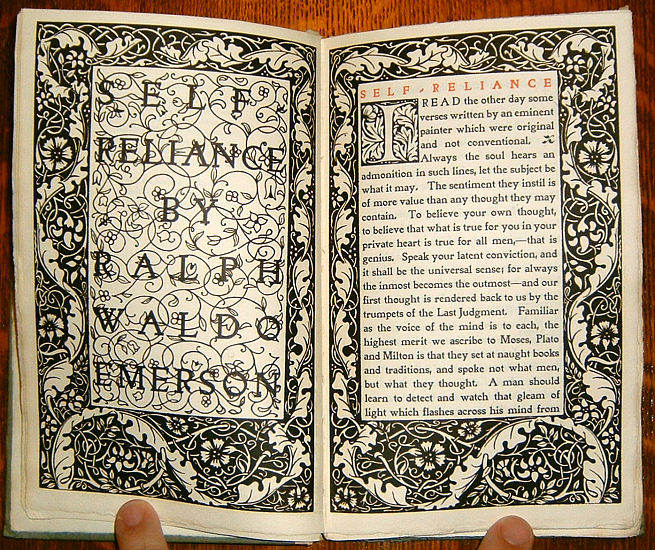 SELF
RELIANCE
BY
RALPH
WALDO
EMERSON
SELF-RELIANCE
I READ the other day some
verses written by an eminent
painter which were original
and not conventional.
Always the soul hears an
admonition in such lines, let the subject be
what it may. The sentiment they instil is
of more value than any thought they may
contain. To believe your own thought,
to believe that what is true for you in your
private heart is true for all men,—that is
genius. Speak your latent conviction, and
it shall be the universal sense; for always
the inmost becomes the outmost—and our
first thought is rendered back to us by the
trumpets of the Last Judgment. Familiar
as the voice of the mind is to each, the
highest merit we ascribe to Moses, Plato
and Milton is that they set at naught books
and traditions, and spoke not what men,
but what they thought. A man should
learn to detect and watch that gleam of
light which flashes across his mind from